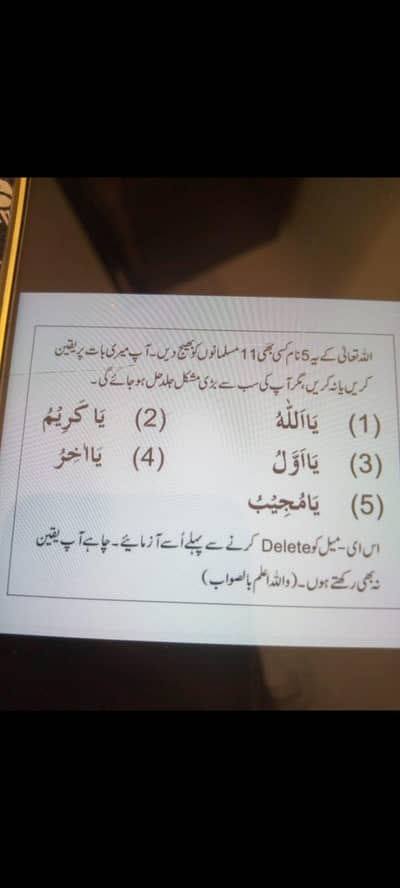 اللہ تعالیٰ کے یہ 5 نام کسی بھی 11 مسلمانوں کو بھیج دیں۔ آپ میری بات پر یقین
کریں یا نہ کریں، مگر آپ کی سب سے بڑی مشکل جلد حل ہو جائے گی۔
(1) يَا اَللّٰهُ (2) يَا كَرِيْمُ
(3) يَا اَوَّلُ (4) يَا اٰخِرُ
(5) يَا مُجِيْبُ
اس ای-میل کو Delete کرنے سے پہلے اُسے آزمائیے۔ چاہے آپ یقین
نہ بھی رکھتے ہوں۔ (واللہ اعلم بالصواب)